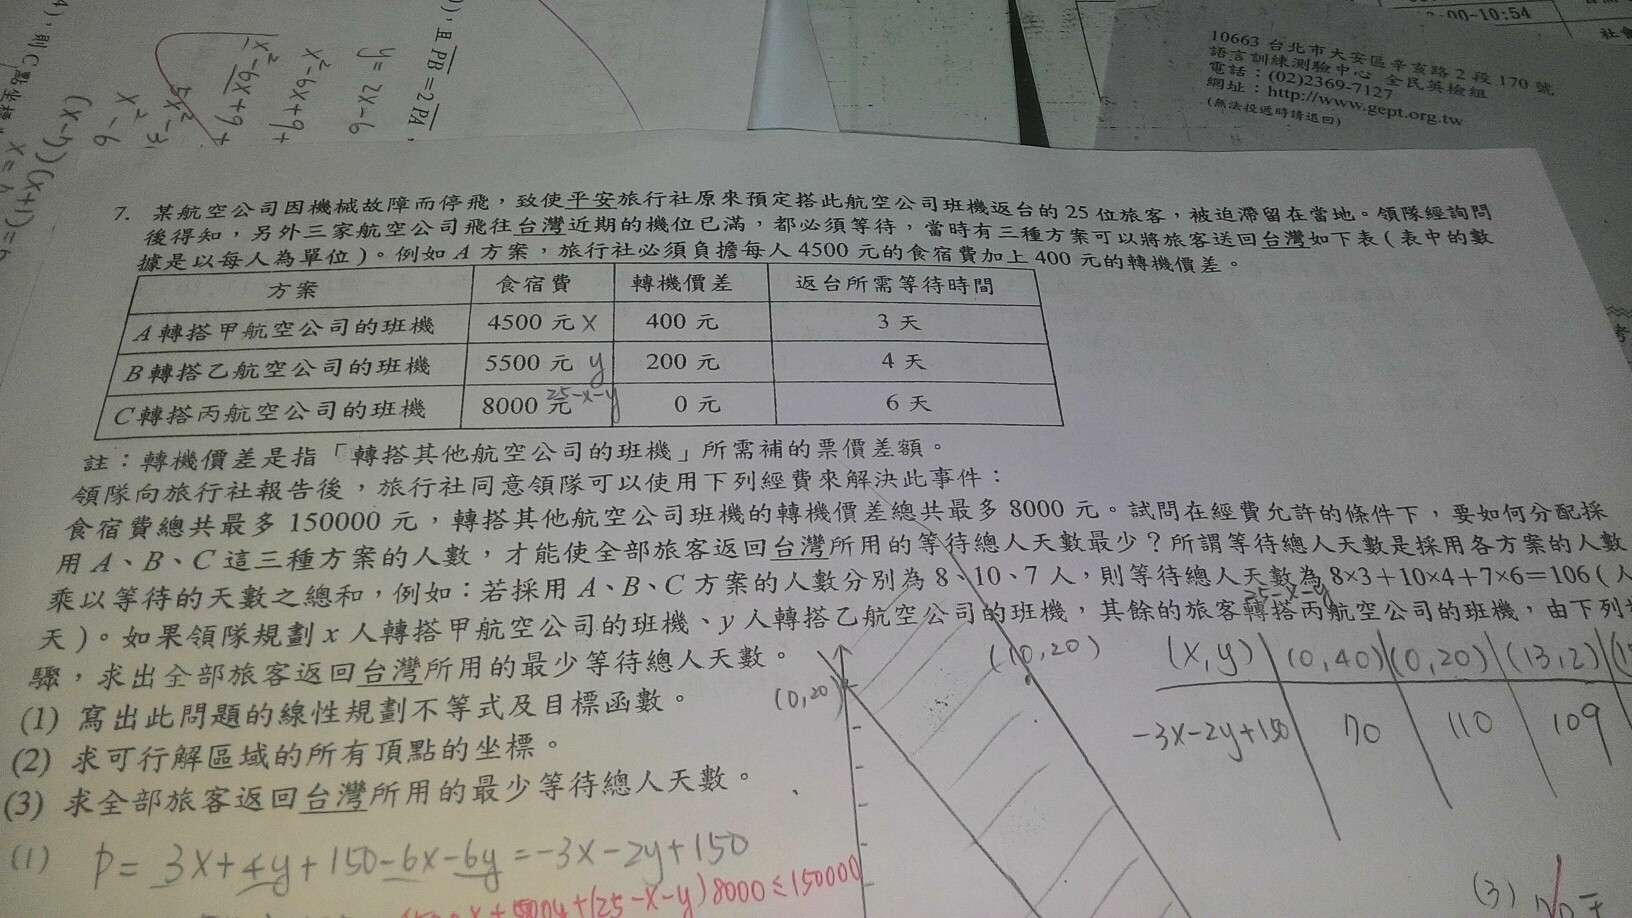 -00-10:54
社會
10663 台北市大安區辛亥路 2 段 170 號
語言訓練測驗中心 全民英檢組
電話：(02)2369-7127
網址：http://www.gept.org.tw
(無法投遞時請退回)
，則 C 點坐標
(x-7)(x+1)=
x²-6
x²-6x+9+
x²-6x+9+
y=2x-6
))，且 PB=2PA，
7. 某航空公司因機械故障而停飛，致使平安旅行社原來預定搭此航空公司班機返台的 25 位旅客，被迫滯留在當地。領隊經詢問
後得知，另外三家航空公司飛往台灣近期的機位已滿，都必須等待，當時有三種方案可以將旅客送回台灣如下表（表中的數
據是以每人為單位）。例如 A 方案，旅行社必須負擔每人 4500 元的食宿費加上 400 元的轉機價差。
方案 食宿費 轉機價差 返台所需等待時間
A 轉搭甲航空公司的班機 4500 元 x 400 元 3 天
B 轉搭乙航空公司的班機 5500 元 y 200 元 4 天
C 轉搭丙航空公司的班機 8000 元 25-x-y 0 元 6 天
註：轉機價差是指「轉搭其他航空公司的班機」所需補的票價差額。
領隊向旅行社報告後，旅行社同意領隊可以使用下列經費來解決此事件：
食宿費總共最多 150000 元，轉搭其他航空公司班機的轉機價差總共最多 8000 元。試問在經費允許的條件下，要如何分配採
用 A、B、C 這三種方案的人數，才能使全部旅客返回台灣所用的等待總人天數最少？所謂等待總人天數是採用各方案的人數
乘以等待的天數之總和，例如：若採用 A、B、C 方案的人數分別為 8、10、7 人，則等待總人天數為 8×3+10×4+7×6=106（人
25-x-y
天）。如果領隊規劃 x 人轉搭甲航空公司的班機、y 人轉搭乙航空公司的班機，其餘的旅客轉搭丙航空公司的班機，由下列
驟，求出全部旅客返回台灣所用的最少等待總人天數。
(1) 寫出此問題的線性規劃不等式及目標函數。
(2) 求可行解區域的所有頂點的坐標。
(3) 求全部旅客返回台灣所用的最少等待總人天數。
(0,20)
(10,20)
(x,y) (0,40) (0,20) (13,2)
-3x-2y+150 70 110 109
(1) P= 3x+4y+150-6x-6y=-3x-2y+150
+(25-x-y)8000≤150000
(3)